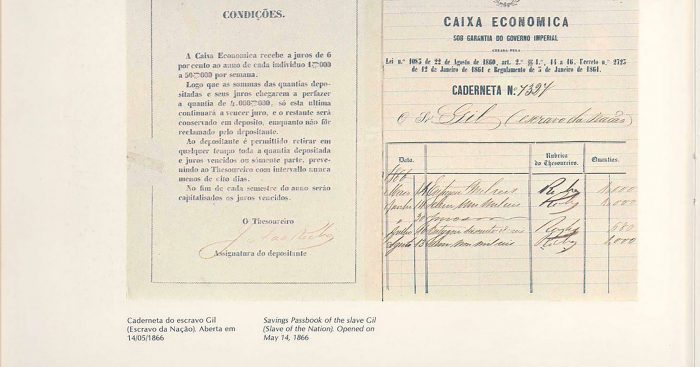 CONDIÇÕES.
A Caixa Economica recebe a juros de 6
por cento ao anno de cada individuo 1$000
a 50$000 por semana.
Logo que as sommas das quantias depo-
sitadas e seus juros chegarem a perfazer
a quantia de 4.000$000, só esta ultima
continuará a vencer juro, e o restante será
conservado em deposito, emquanto não fôr
reclamado pelo depositante.
Ao depositante é permittido retirar em
qualquer tempo toda a quantia depositada
e juros vencidos ou sómente parte, preve-
nindo ao Thesoureiro com intervallo nunca
menos de oito dias.
No fim de cada semestre do anno serão
capitalisados os juros vencidos.
O Thesoureiro
Assignatura do depositante
CAIXA ECONOMICA
SOB GARANTIA DO GOVERNO IMPERIAL
CREADA PELA
Lei n.º 1083 de 22 de Agosto de 1860, art. 2.º §§ 1.º, 14 a 16, Decreto n.º 2723
de 12 de Janeiro de 1861 e Regulamento de 5 de Janeiro de 1861.
CADERNETA N.º 7397
O Sr Gil (escravo da Nação)
Data. Rubrica do Thesoureiro. Quantias.
Caderneta do escravo Gil
(Escravo da Nação). Aberta em
14/05/1866
Savings Passbook of the slave Gil
(Slave of the Nation). Opened on
May 14, 1866